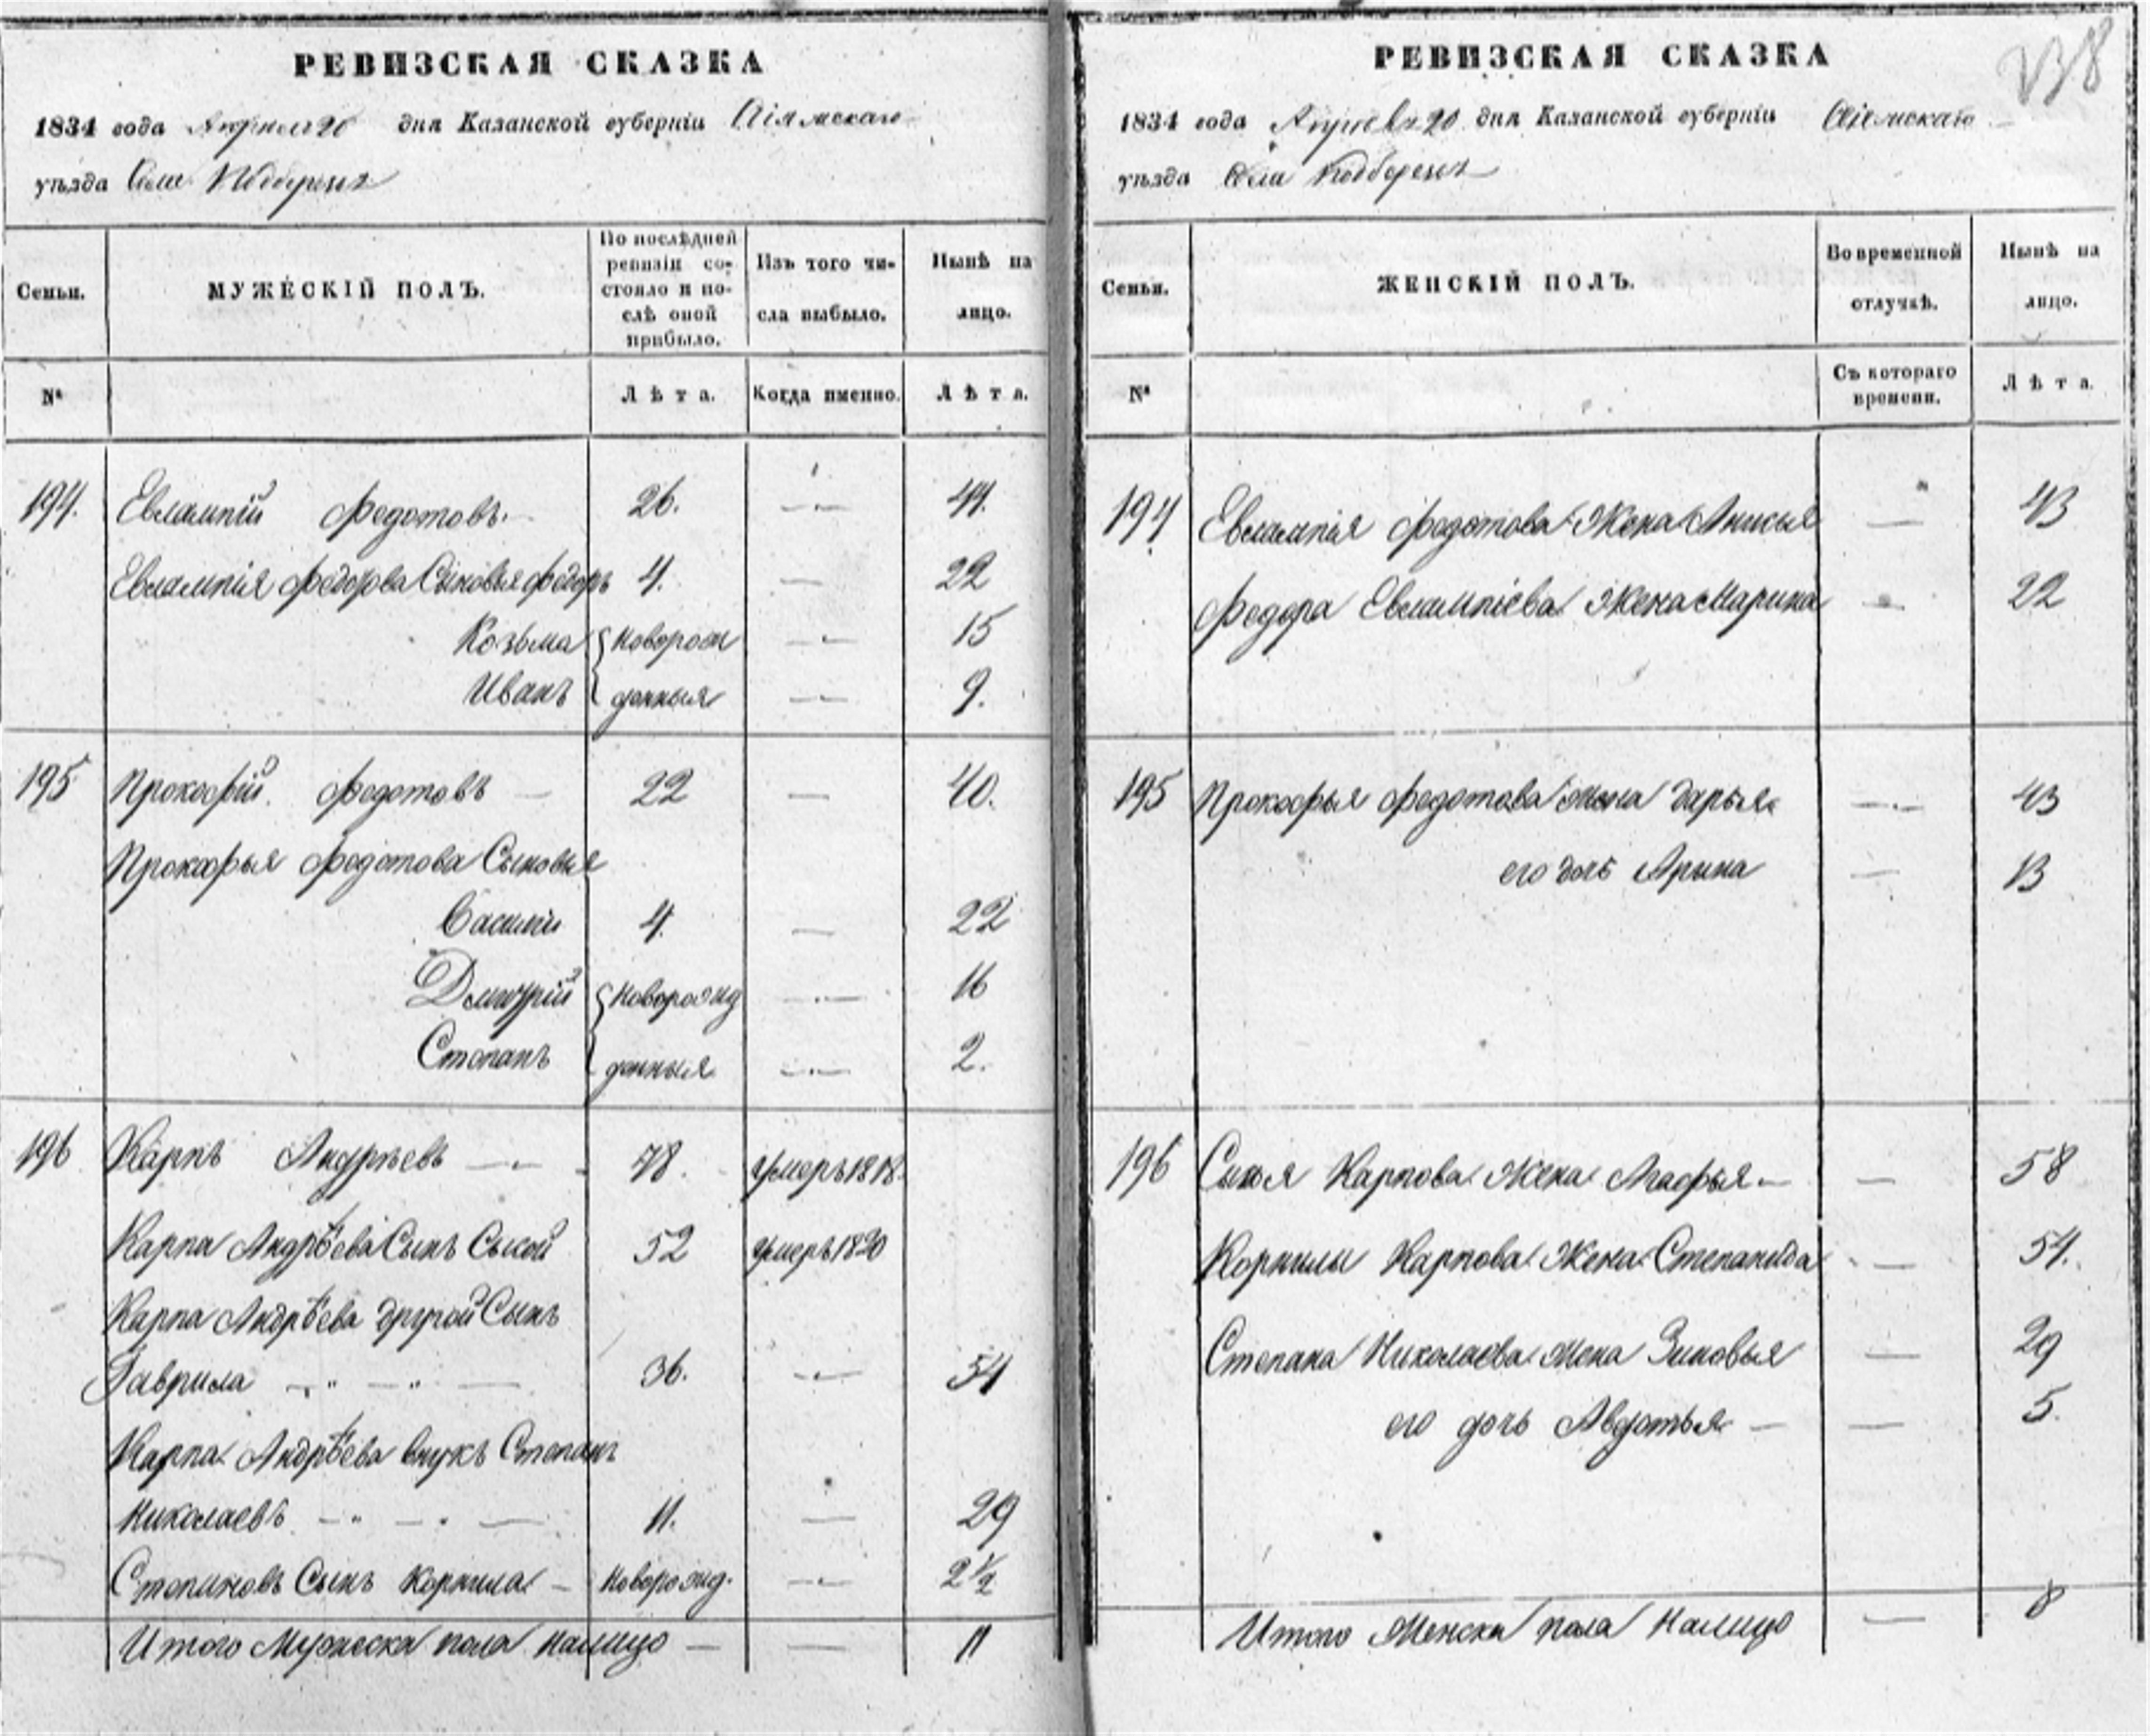 РЕВИЗСКАЯ СКАЗКА
1834 года Апреля 20 дня Казанской губерніи
уѣзда Села
Семьи.
МУЖЕСКІЙ ПОЛЪ.
По послѣдней ревизіи состояло и послѣ оной прибыло.
Изъ того числа выбыло.
Нынѣ на лицо.
№
Лѣта.
Когда именно.
Лѣта.
194. Евлампій Федотовъ. 26. — 44.
Евлампія Федорова Сыновья Федоръ 4. — 22
Козьма новорож — 15
Иванъ денныя — 9.
195 Прокофій Федотовъ — 22 — 40.
Прокофья Федотова Сыновья
Василій 4. — 22
Дмитрій новорожд — 16
Степанъ денныя — 2.
196 Карпъ Андрѣевъ — 78. умеръ 1818.
Карпа Андрѣева Сынъ Сысой 52 умеръ 1820
Карпа Андрѣева другой Сынъ
Гаврила — 36. — 54
Карпа Андрѣева внукъ Степанъ
Николаевъ — 11. — 29
Степановъ Сынъ Корнила — новорожд. — 2½
Итого Мужеска пола налицо — — 11
РЕВИЗСКАЯ СКАЗКА
1834 года Апреля 20 дня Казанской губерніи
уѣзда Села
Семьи.
ЖЕНСКІЙ ПОЛЪ.
Во временной отлучкѣ.
Нынѣ на лицо.
№
Съ котораго времени.
Лѣта.
194 Евлампія Федотова Жена Анисья — 43
Федора Евлампіева Жена Марина — 22
195 Прокофья Федотова жена Дарья — 43
его дочь Арина — 13
196 Сысоя Карпова Жена Агафья — — 58
Корнилы Карпова Жена Степанида — 54.
Степана Николаева Жена Зиновья — 29
его дочь Авдотья — — 5.
Итого Женска пола налицо — 8